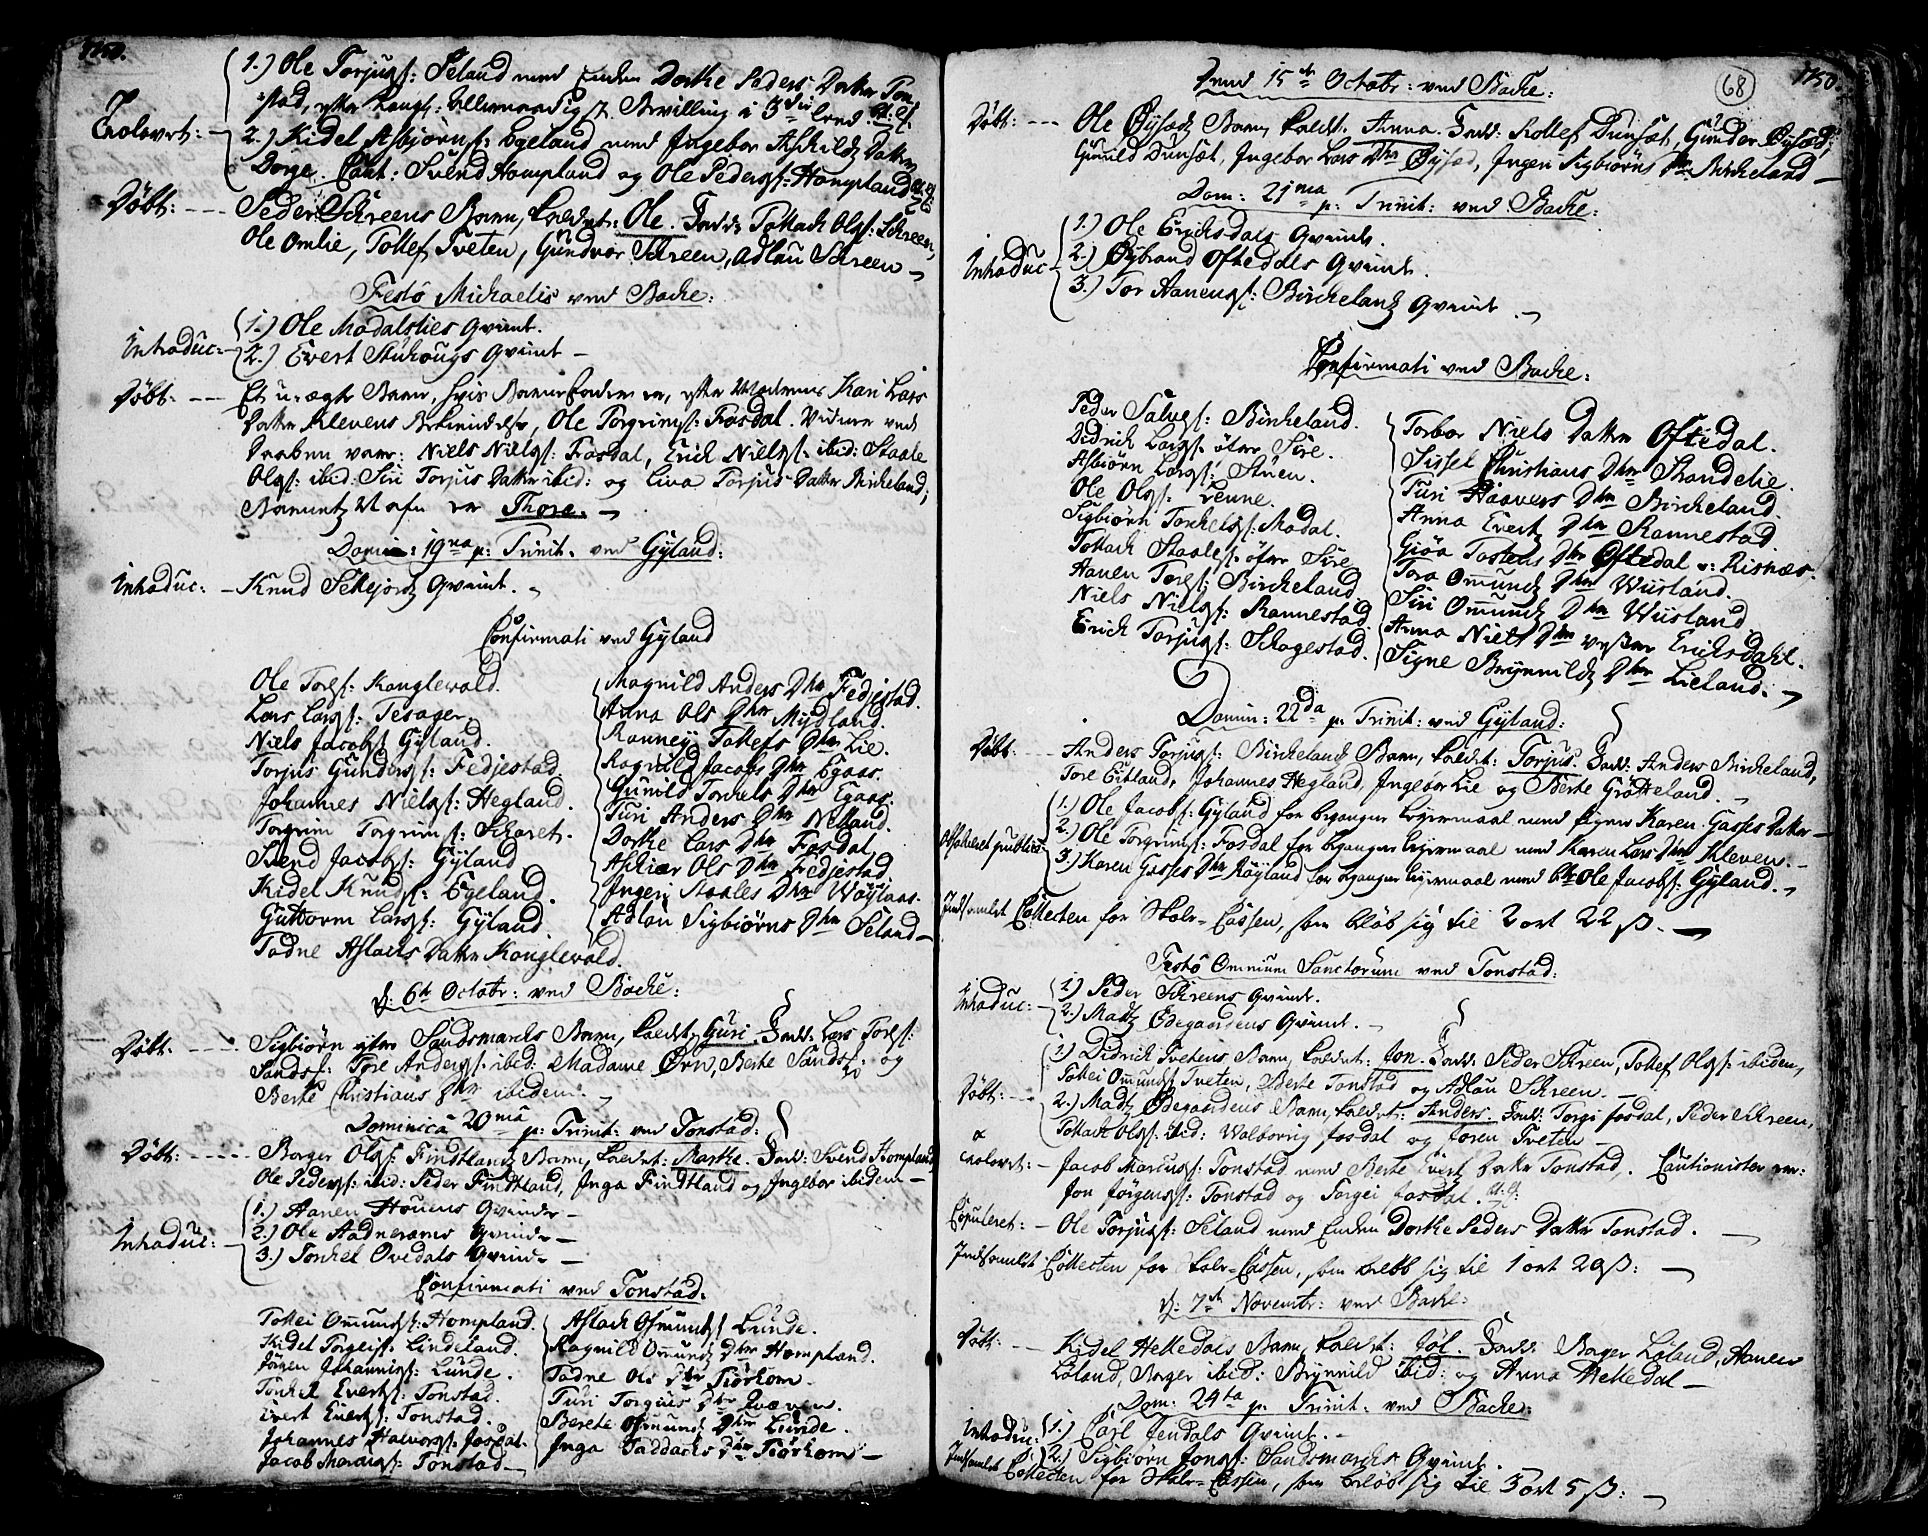 1750.
1.) Ole Torjuss: Seland med Enken Dorthe Peders Datter Ton-
stad, efter Kongl: Allernaadigst Bevilling i 3die Leed
Trolovet: 2.) Kidel Asbjörns: Egeland med Ingebor Askilds Datter
Dorge. Caut: Svend Hompland og Ole Peders: Hompland
Döbt: --- Peder Schreens Barn, kaldet: Ole. Fadd: Tollach Ols: Schreen,
Ole Omlie, Tollef Tveten, Gundvor Schreen, Adlau Schreen
Festo Michaelis ved Backe:
1.) Ole Modalslies Qvinde.
Introduc: 2.) Evert Stuhougs Qvinde
Döbt: --- Et u-ægte Barn, hvis Barnefader er, efter Moderens Kari Lars
Datter Klevens Bekiendelse, Ole Torgrims: Fosdal. Vidner ved
Daaben vare: Niels Niels: Fosdal, Erich Niels: ibid: Staale
Ols: ibid: Siri Torjus Datter ibid: og Liva Torjus Datter Birkeland;
Barnets Nafn er Thore.
Domin: 19na p: Trinit. ved Gyland:
Introduc: Knud Sekejords Qvinde.
Confirmati ved Gyland
Ole Tores: Konglevold.
Lars Lars: Tesager.
Niels Jacobs: Gyland.
Torjus Gunders: Fedjestad.
Johannes Niels: Hegland.
Torgrim Torgrims: Scharet.
Svend Jacobs: Gyland
Kidel Knuds: Egeland.
Guttorm Lars: Gyland.
Tadne Aslachs Datter Konglevold.
Magnild Anders Dtr Fedjestad.
Anna Ols Dtr Mydland.
Ranney Tollefs Dtr Lie.
Ragnild Jacobs Dtr Egaas.
Gunild Torkels Dtr Egaas.
Turi Anders Dtr Netland.
Dorthe Lars Dtr Fosdal
Askier Ols Dtr Fedjestad.
Ingeri Staales Dtr
Adlau Sigbiörns Dtr Seland
d: 6te Octobr: ved Backe:
Döbt: --- Sigbiörn Sandsmarchs Barn, kaldet Guri. Fadd: Lars Tores:
Sands: Tore Anders: ibid: Madame Örn, Berte Sands: og
Berte Christians Dtr ibidem.
Dominica 20ma p: Trinit: ved Tonstad:
Döbt: --- Borger Ols: Findtlands Barn, kaldet: Marthe. Fadd: Svend Hompland
Ole Peders: ibid: Peder Findtland, Inga Findtland og Ingebor ibidem
1.) Aanen Houens Qvinde
Introduc: 2.) Ole Aadnerams Qvinde
3.) Tonkel Ovedals Qvinde
Confirmati ved Tonstad.
Tollei Omunds: Hompland.
Kidel Torgeis: Lindeland.
Jörgen Johannis: Lunde.
Tonkel Everts: Tonstad.
Evert Everts: Tonstad.
Johannes Halvors: Josdal.
Jacob Marcus: Tonstad
Aslach Osmunds: Lunde.
Ragnild Omunds Dtr Hompland.
Tadne Ols Dtr Tiörhom.
Turi Torgius Dtr Qvæven.
Berete Osmunds Dtr Lunde.
Inga Taddachs Dtr Tiörhom
1750.
68
Dend 15de Octobr: ved Backe:
Döbt: --- Ole Öyseds Barn, kaldet. Anna. Fadd: Rollef Dunset, Gunder Öysed,
Gunild Dunset, Ingebor Lars Dtr Öysed, Ingeri Sigbiörns Dtr Birkeland
Dom: 21ma p: Trinit: ved Backe:
1.) Ole Erichsdals Qvinde.
Introduc 2.) Öybrand Oftedals Qvinde.
3.) Tor Aanens: Birckelands Qvinde
Confirmati ved Backe:
Peder Salves: Birckeland.
Didrich Lars: öfre Sire.
Asbiörn Lars: Stuen.
Ole Ols: Lenne.
Sigbiörn Tonkels: Modal.
Tollach Staales: öfre Sire
Aanen Tores: Birckeland
Niels Niels: Rannestad.
Erich Torjus: Schagestad.
Torbor Niels Datter Oftedal.
Sissel Christians Dtr Strandelie.
Turi Haavers Dtr Birckeland.
Anna Everts Dtr Rannestad
Giöa Tostens Dtr Oftedal v: Risnæs.
Tora Omunds Dtr Wiisland.
Siri Omunds Dtr Wiisland.
Anna Niels Dtr vester Erichsdahl.
Signe Brynnilds Dtr Lieland.
Domin: 22da p: Trinit: ved Gyland:
Döbt: --- Anders Torjus: Birckelands Barn, kaldet: Torjus. Fadd: Anders Birckeland,
Tore Eitland, Johannes Hegland, Ingebor Lie og Berte Grötteland.
1.) Ole Jacobs: Gyland for begangne Leiermaal med Karen Gasses Datter
Absolveret publice: 2.) Ole Torgrims: Fosdal for begangne Leiermaal med Karen Lars Dtr Kleven.
3.) Karen Gasses Dtr Röyland for begangne Leiermaal med Ole Jacobs: Gyland.
Indsamlet Collecten for Skole-Cassen, som belöb sig til 2 ort 22 ß.
Festo Omnium Sanctorum ved Tonstad:
1.) Peder Schreens Qvinde.
Introduc: 2.) Mads Ödegaardens Qvinde.
1.) Didrich Tvetens Barn, kaldet: Jon. Fadd: Peder Schreen, Tollef Ols: ibidem,
Tollei Omunds: Tveten, Berte Tonstad og Adlau Schreen.
Döbt: --- 2.) Mads Ödegaardens Barn, kaldet: Anders. Fadd: Torgi Josdal, Peder Schreen,
Tollach Ols: ibid: Walborrig Josdal og Joren Tveten
Trolovet: Jacob Marcus: Tonstad med Berte Everts Datter Tonstad, Cautionister ere:
Jon Jörgens: Tonstad og Torgei Josdal.
Copuleret: Ole Torjus: Seland med Enken Dorthe Peders Datter Tonstad.
Indsamlet Collecten for Skole-Cassen, som belöb sig til 1 ort 20 ß:
d: 7de Novembr: ved Backe:
Döbt: --- Kidel Hekkedals Barn, kaldet: Jöl. Fadd: Borger Löland, Aanen
Löland, Borger ibid: Brynnild ibid: og Anna Hekkedal
Dom: 24ta p: Trinit: ved Backe:
Introduc: 1.) Carl Jendals Qvinde.
2.) Sigbiörn Jons: Sandsmarchs Qvinde.
Indsamlet Collecten for Skole-Cassen, som belöb sig til 3 ort 5 ß: